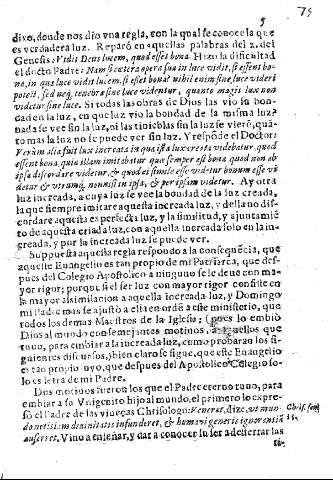 5
79
dixo, donde nos dio vna regla, con la qual se conoce la que
es verdadera luz. Reparò en aquellas palabras del 2. del
Genesis: Vidit Deus lucem, quod esset bona. Hizo la dificultad
el docto Padre: Nam si cætera opera sua in luce vidit, si esset bo-
na, in qua luce vidit lucem, si esset bona? nihil enim sine luce videri
potest, sed neq; tenebræ sine luce videntur, quanto magis lux non
videtur sine luce. Si todas las obras de Dios las vio su bon-
dad en la luz, en que luz vio la bondad de la misma luz?
nada se vee sin la luz, ni las tinieblas sin la luz se vieró, quã-
to mas la luz no se puede ver sin luz. Y respõde el Doctor:
Verùm alia fuit lux increata in qua ista lux creata videbatur, quod
essent bona, quia illam imitabatur quæ semper est bona quod non ab
ipsa discordare videtur, & quod ei simile esse videtur bonum esse vi
detur & vtrumq; nonnisi in ipsa, & per ipsam videtur. Ay otra
luz increada, a cuya luz se vee la bondad de la luz creada,
la que siempre imitare aquesta increada luz, y della no dis-
cordare aquesta es perfecta luz, y la similitud, y ajuntamiē
to de aquesta criada luz, con aquella increada solo en la in-
creada, y por la increada luz se puede ver.
Supuesta aquesta regla respondo a la consequēcia, que
aqueste Euangelio es tan propio de mi Patriarca, que des-
pues del Colegio Apostolico a ninguno se le deue con ma-
yor rigor; porque si el ser luz con mayor rigor consiste en
la mayor assimilacion a aquella increada luz, y Domingo
mi Padre mas se ajusto a ella en ordē a este ministerio, que
todos los demas Maestros de la Iglesia; (pues lo embiò
Dios al mundo con semejantes motiuos, a aquellos que
tuuo, para embiar a la increada luz, como probaràn los si-
guientes discursos,) bien claro se sigue, que este Euangelio
es tan propio suyo, que despues del Apostolico Colegio so-
lo es letra de mi Padre.
Dos motiuos fueron los que el Padre eterno tuuo, para
embiar a su Vnigenito hijo al mundo, el primero lo expre-
sò el Padre de las viueças Chrisologo: Venerat, dize, vt mun-
do notitiam diuinitatis infunderet, & humani generis ignorantiã
auferret, Vino a enseñar, y dar a conocer su ser a desterrar las
Chris. ser.
ti-